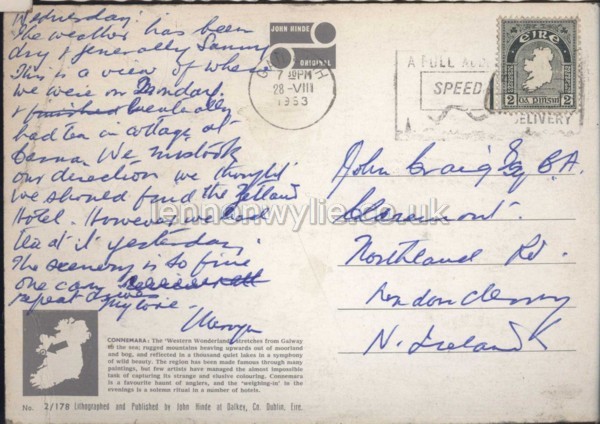 Wednesday.
The weather has been
dry & generally Sunny
This is a view of where
we were on Monday.
& finished eventually
had tea in cottage at
Carna. We mistook
our direction we thought
we should find the Zetland
Hotel. However we had
tea at it yesterday.
The scenery is so fine
one can
repeat
my love
JOHN HINDE
ORIGINAL
7 30PM
28-VIII
1963
A FULL
SPEED
DELIVERY
ÉIRE
2 DÁ PINGIN 2
John Craig Esq C.A.
Claremont
Northland Rd.
Londonderry
N. Ireland
lennonwylie.co.uk
CONNEMARA: The 'Western Wonderland' stretches from Galway
to the sea; rugged mountains heaving upwards out of moorland
and bog, and reflected in a thousand quiet lakes in a symphony
of wild beauty. The region has been made famous through many
paintings, but few artists have managed the almost impossible
task of capturing its strange and elusive colouring. Connemara
is a favourite haunt of anglers, and the 'weighing-in' in the
evenings is a solemn ritual in a number of hotels.
No. 2/178 Lithographed and Published by John Hinde at Dalkey, Co. Dublin, Eire.